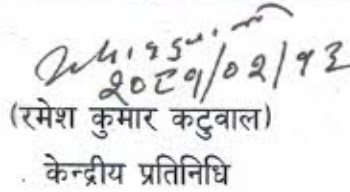 २०८१/०२/१३
(रमेश कुमार कटुवाल)
केन्द्रीय प्रतिनिधि